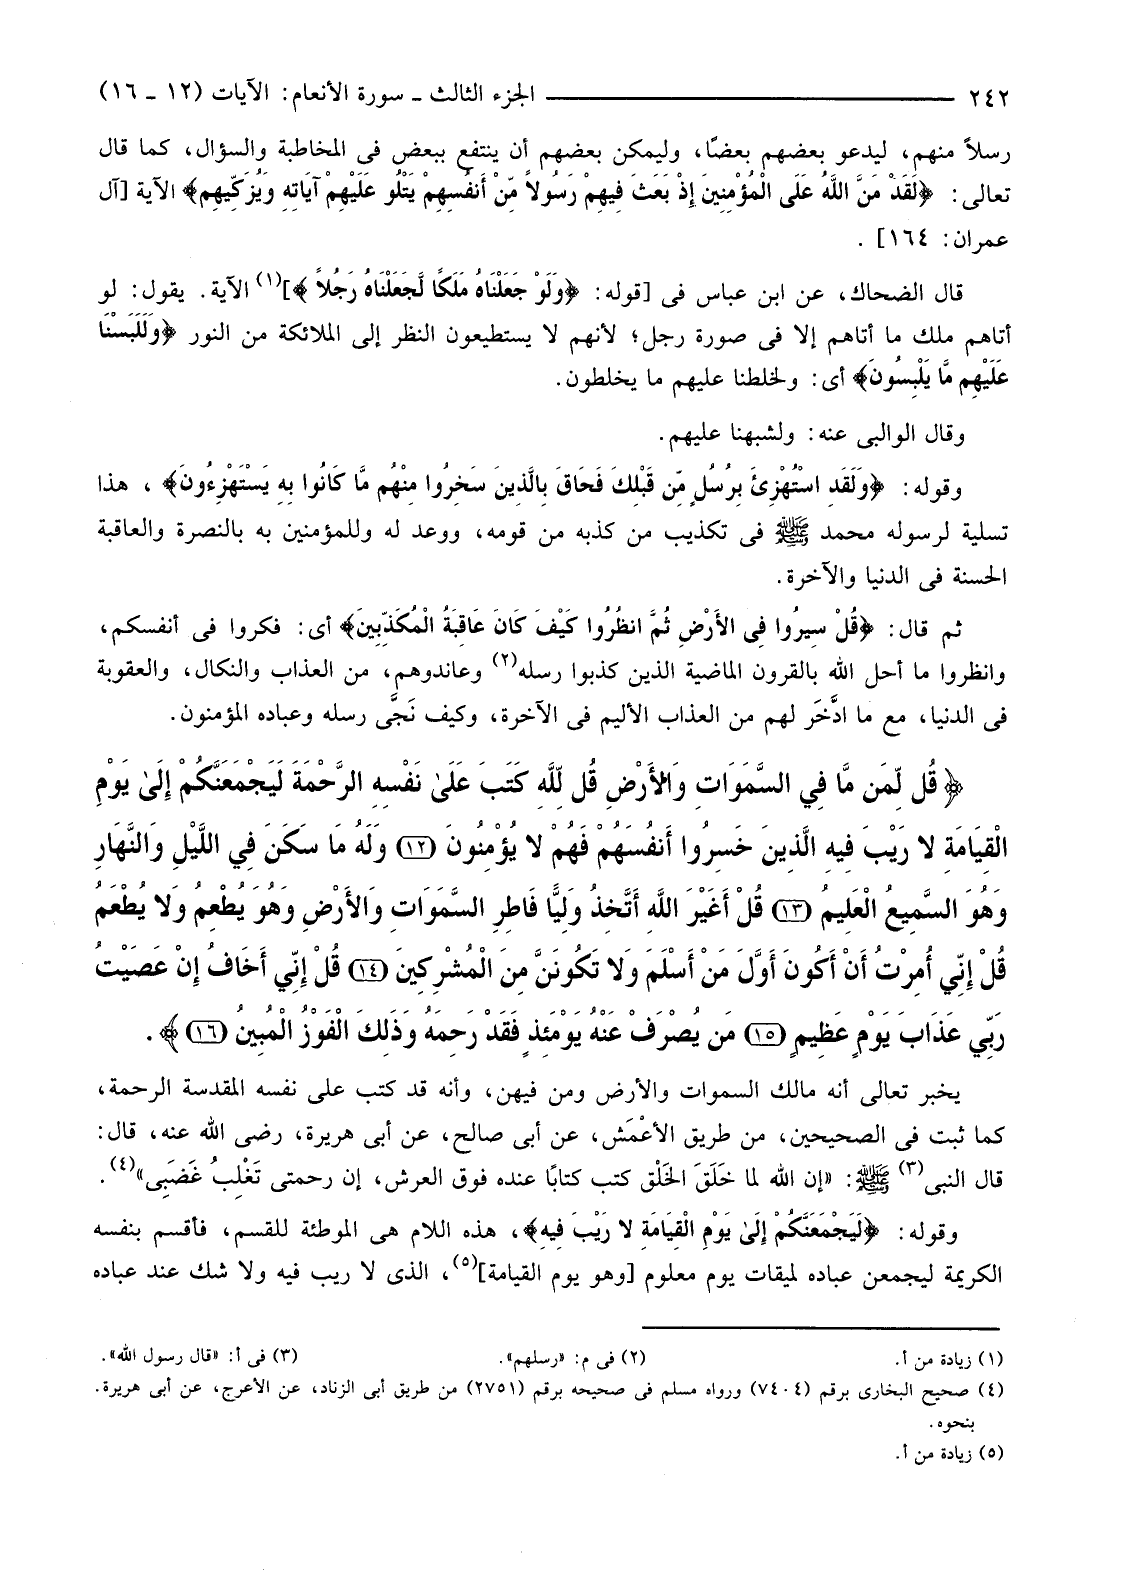 ٢٤٢ ـــــــــــــــــــــــــ الجزء الثالث ـ سورة الأنعام: الآيات (١٢ ـ ١٦)
رسلاً منهم، ليدعو بعضهم بعضًا، وليمكن بعضهم أن ينتفع ببعض فى المخاطبة والسؤال، كما قال
تعالى: ﴿لَقَدْ مَنَّ اللَّهُ عَلَى الْمُؤْمِنِينَ إِذْ بَعَثَ فِيهِمْ رَسُولاً مِّنْ أَنفُسِهِمْ يَتْلُو عَلَيْهِمْ آيَاتِهِ وَيُزَكِّيهِم﴾ الآية [آل
عمران: ١٦٤] .
قال الضحاك، عن ابن عباس فى [قوله: ﴿وَلَوْ جَعَلْنَاهُ مَلَكًا لَّجَعَلْنَاهُ رَجُلاً ﴾](١) الآية. يقول: لو
أتاهم ملك ما أتاهم إلا فى صورة رجل؛ لأنهم لا يستطيعون النظر إلى الملائكة من النور ﴿وَلَلَبَسْنَا
عَلَيْهِم مَّا يَلْبِسُونَ﴾ أى: ولخلطنا عليهم ما يخلطون.
وقال الوالبى عنه: ولشبهنا عليهم.
وقوله: ﴿وَلَقَدِ اسْتُهْزِئَ بِرُسُلٍ مِّن قَبْلِكَ فَحَاقَ بِالَّذِينَ سَخِرُوا مِنْهُم مَّا كَانُوا بِهِ يَسْتَهْزِءُونَ﴾ ، هذا
تسلية لرسوله محمد ﷺ فى تكذيب من كذبه من قومه، ووعد له وللمؤمنين به بالنصرة والعاقبة
الحسنة فى الدنيا والآخرة.
ثم قال: ﴿قُلْ سِيرُوا فِي الأَرْضِ ثُمَّ انظُرُوا كَيْفَ كَانَ عَاقِبَةُ الْمُكَذِّبِينَ﴾ أى: فكروا فى أنفسكم،
وانظروا ما أحل الله بالقرون الماضية الذين كذبوا رسله(٢) وعاندوهم، من العذاب والنكال، والعقوبة
فى الدنيا، مع ما ادَّخَر لهم من العذاب الأليم فى الآخرة، وكيف نَجَّى رسله وعباده المؤمنون.
﴿ قُل لِّمَن مَّا فِي السَّمَوَاتِ وَالأَرْضِ قُل لِّلَّهِ كَتَبَ عَلَىٰ نَفْسِهِ الرَّحْمَةَ لَيَجْمَعَنَّكُمْ إِلَىٰ يَوْمِ
الْقِيَامَةِ لا رَيْبَ فِيهِ الَّذِينَ خَسِرُوا أَنفُسَهُمْ فَهُمْ لا يُؤْمِنُونَ (١٢) وَلَهُ مَا سَكَنَ فِي اللَّيْلِ وَالنَّهَارِ
وَهُوَ السَّمِيعُ الْعَلِيمُ (١٣) قُلْ أَغَيْرَ اللَّهِ أَتَّخِذُ وَلِيًّا فَاطِرِ السَّمَوَاتِ وَالأَرْضِ وَهُوَ يُطْعِمُ وَلا يُطْعَمُ
قُلْ إِنِّي أُمِرْتُ أَنْ أَكُونَ أَوَّلَ مَنْ أَسْلَمَ وَلا تَكُونَنَّ مِنَ الْمُشْرِكِينَ (١٤) قُلْ إِنِّي أَخَافُ إِنْ عَصَيْتُ
رَبِّي عَذَابَ يَوْمٍ عَظِيمٍ (١٥) مَن يُصْرَفْ عَنْهُ يَوْمَئِذٍ فَقَدْ رَحِمَهُ وَذَلِكَ الْفَوْزُ الْمُبِينُ (١٦)﴾ .
يخبر تعالى أنه مالك السموات والأرض ومن فيهن، وأنه قد كتب على نفسه المقدسة الرحمة،
كما ثبت فى الصحيحين، من طريق الأعْمَش، عن أبى صالح، عن أبى هريرة، رضى الله عنه، قال:
قال النبى(٣) ﷺ: «إن الله لما خَلَقَ الخَلْق كتب كتابًا عنده فوق العرش، إن رحمتى تَغْلِبُ غَضَبِى»(٤).
وقوله: ﴿لَيَجْمَعَنَّكُمْ إِلَىٰ يَوْمِ الْقِيَامَةِ لا رَيْبَ فِيهِ﴾، هذه اللام هى الموطئة للقسم، فأقسم بنفسه
الكريمة ليجمعن عباده لميقات يوم معلوم [وهو يوم القيامة](٥)، الذى لا ريب فيه ولا شك عند عباده
(١) زيادة من أ. (٢) فى م: «رسلهم». (٣) فى أ: «قال رسول الله».
(٤) صحيح البخارى برقم (٧٤٠٤) ورواه مسلم فى صحيحه برقم (٢٧٥١) من طريق أبى الزناد، عن الأعرج، عن أبى هريرة.
بنحوه.
(٥) زيادة من أ.